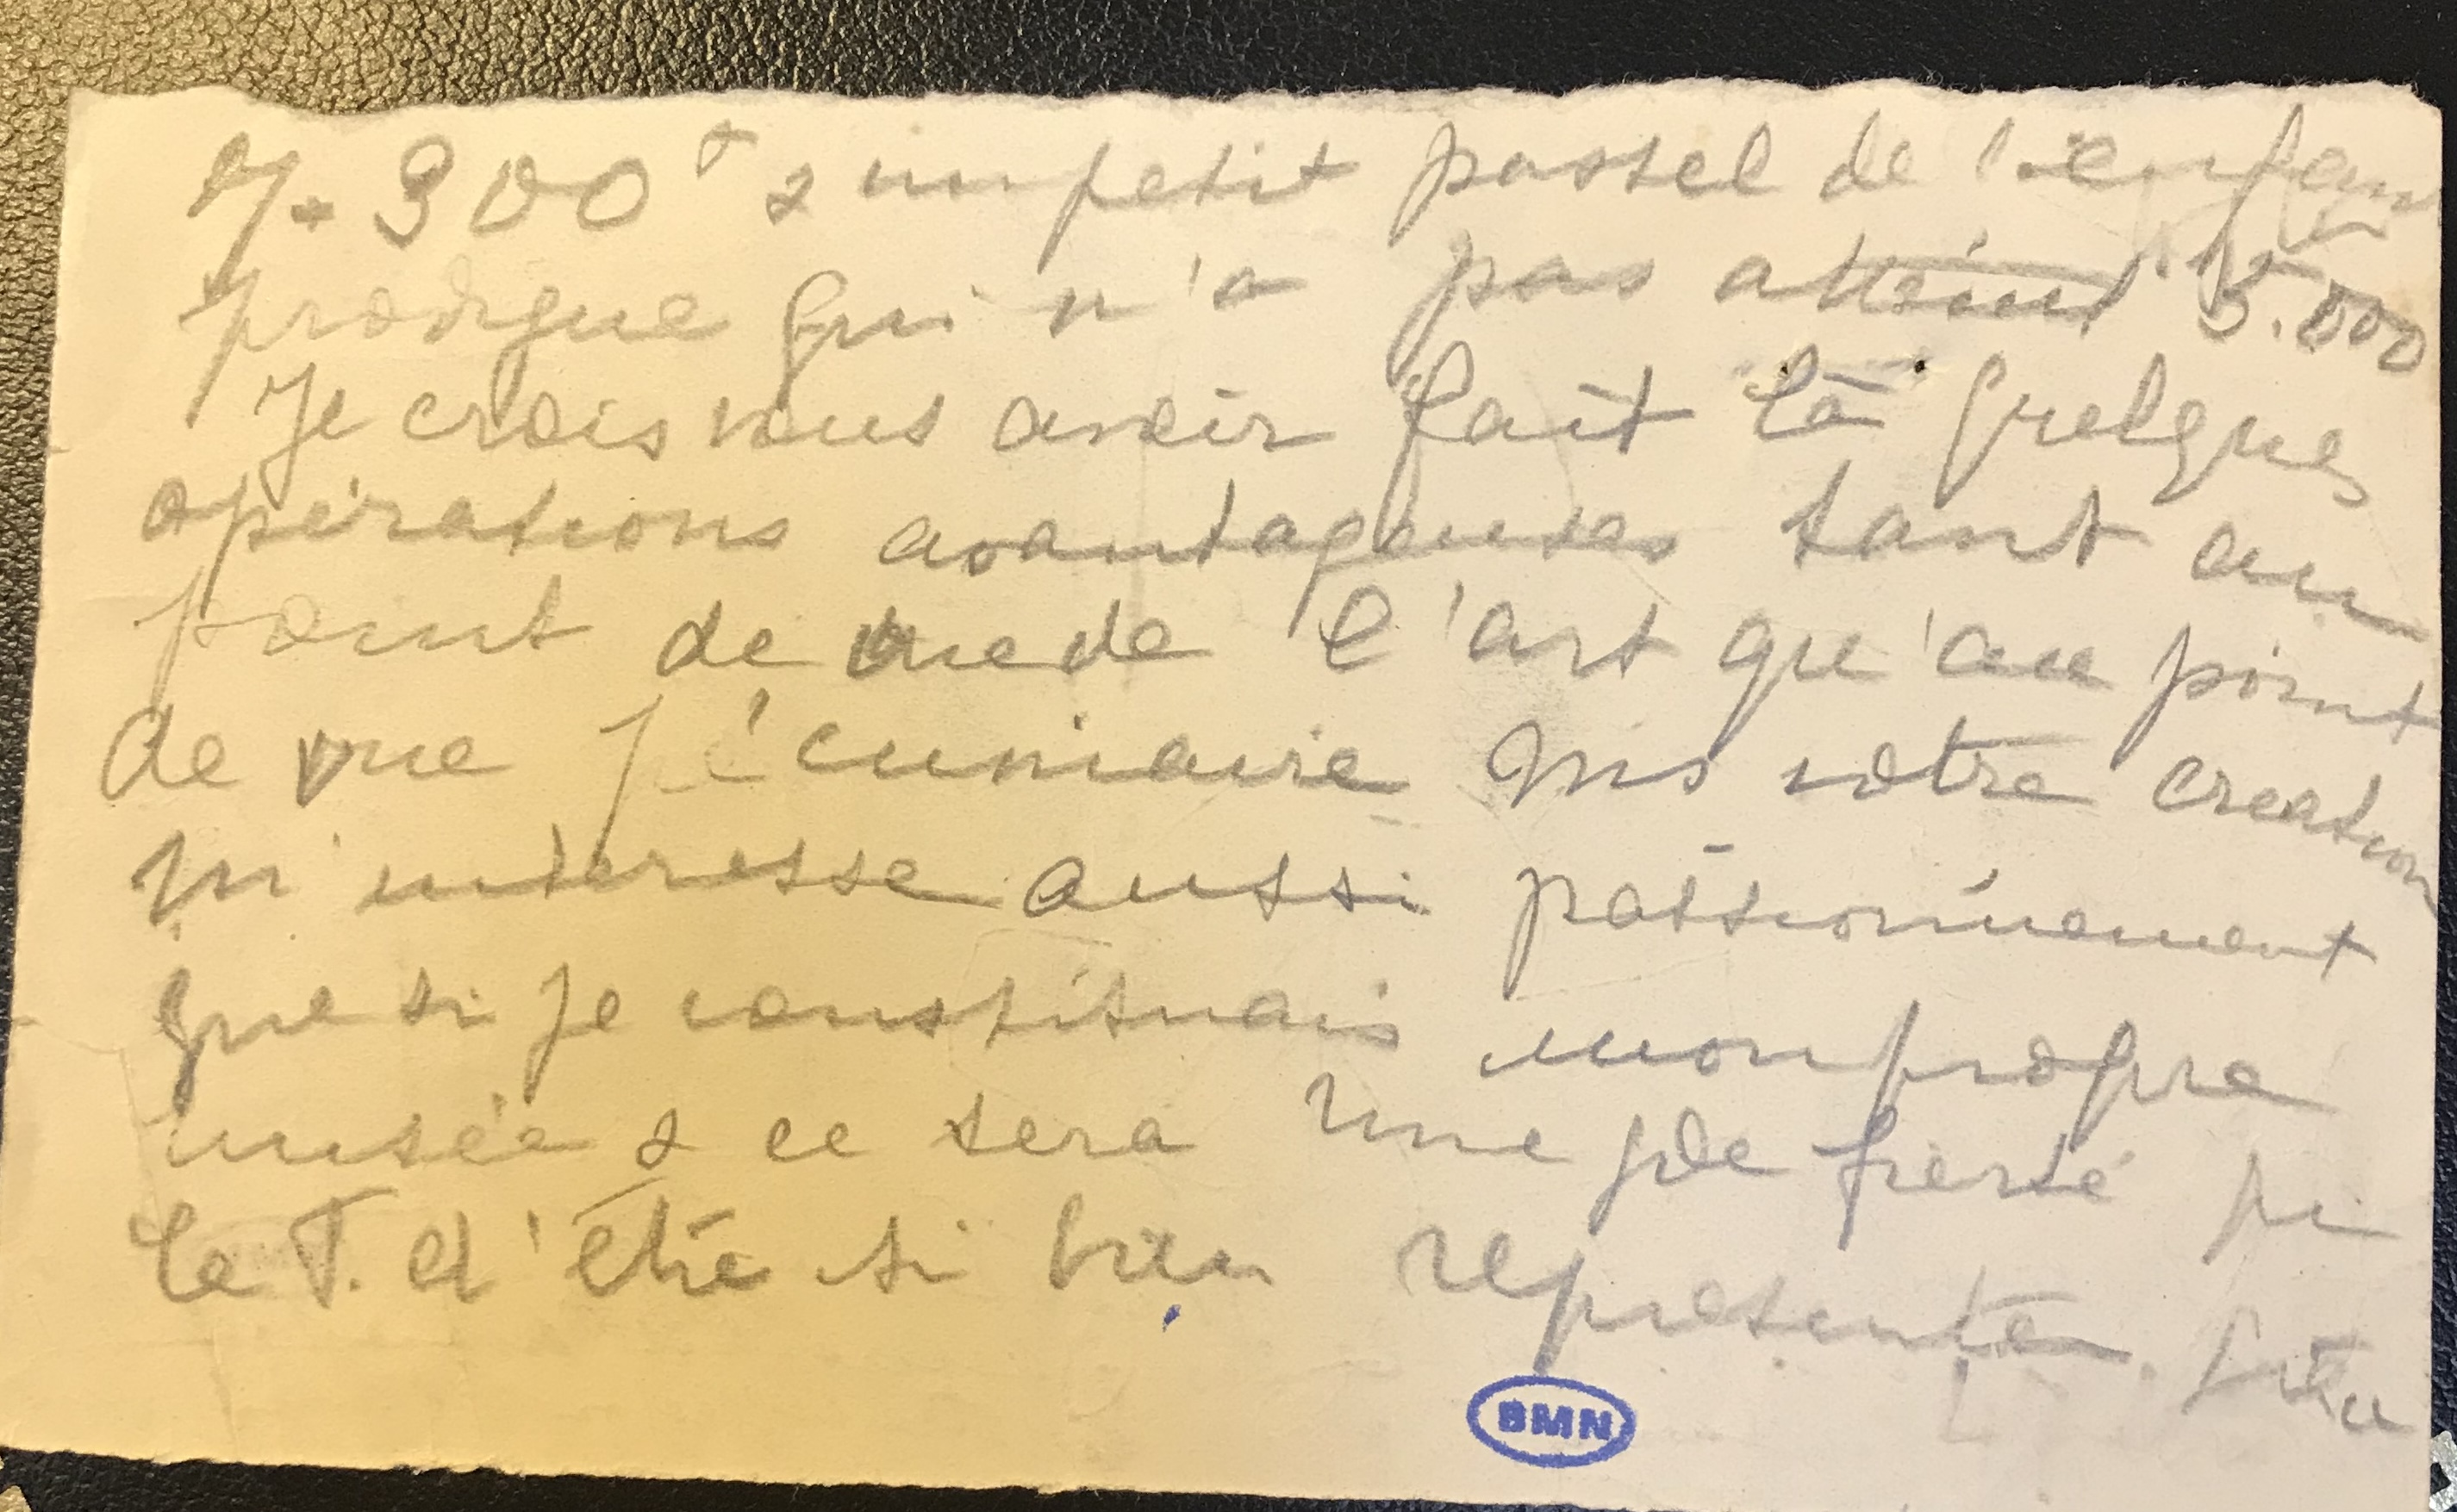 7.300 f & un petit pastel de l'enfant
prodigue qui n'a pas atteint 5.000
Je crois vous avoir fait là quelques
opérations avantageuses tant au
point de vue de l'art qu'au point
de vue pécuniaire Mis votre creation
m'interesse aussi passionnement
que si je constituais mon propre
musée & ce sera une gde fierté
le T. d'été si bien represente.
BMN